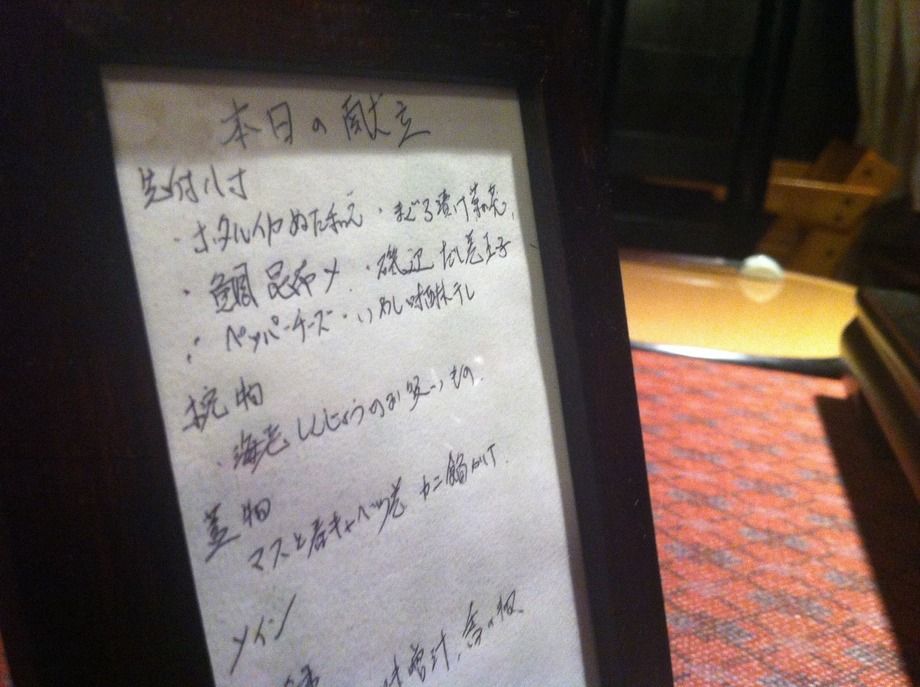 本日の献立
先付八寸
・ホタルイカぬた和え・まぐろ漬け
・鯛昆布〆・磯辺だし巻玉子
ペッパーチーズ・いわし味醂干し
椀物
・海老しんじょうのお吸いもの
蓋物
マスと春キャベツ巻 カニ餡かけ
メイン
味噌汁、香の物